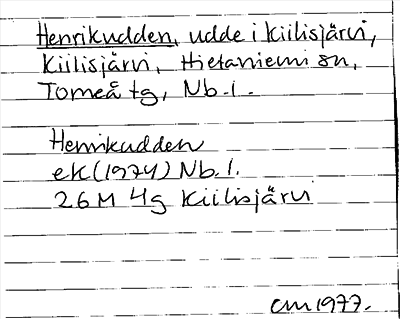 Henrikudden, udde i Kiilisjärvi,
Kiilisjärvi, Hietaniemi sn,
Torneå tg, Nb. l.
Henrikudden
ek (1974) Nb. l.
26M 4g Kiilisjärvi
CM 1977.